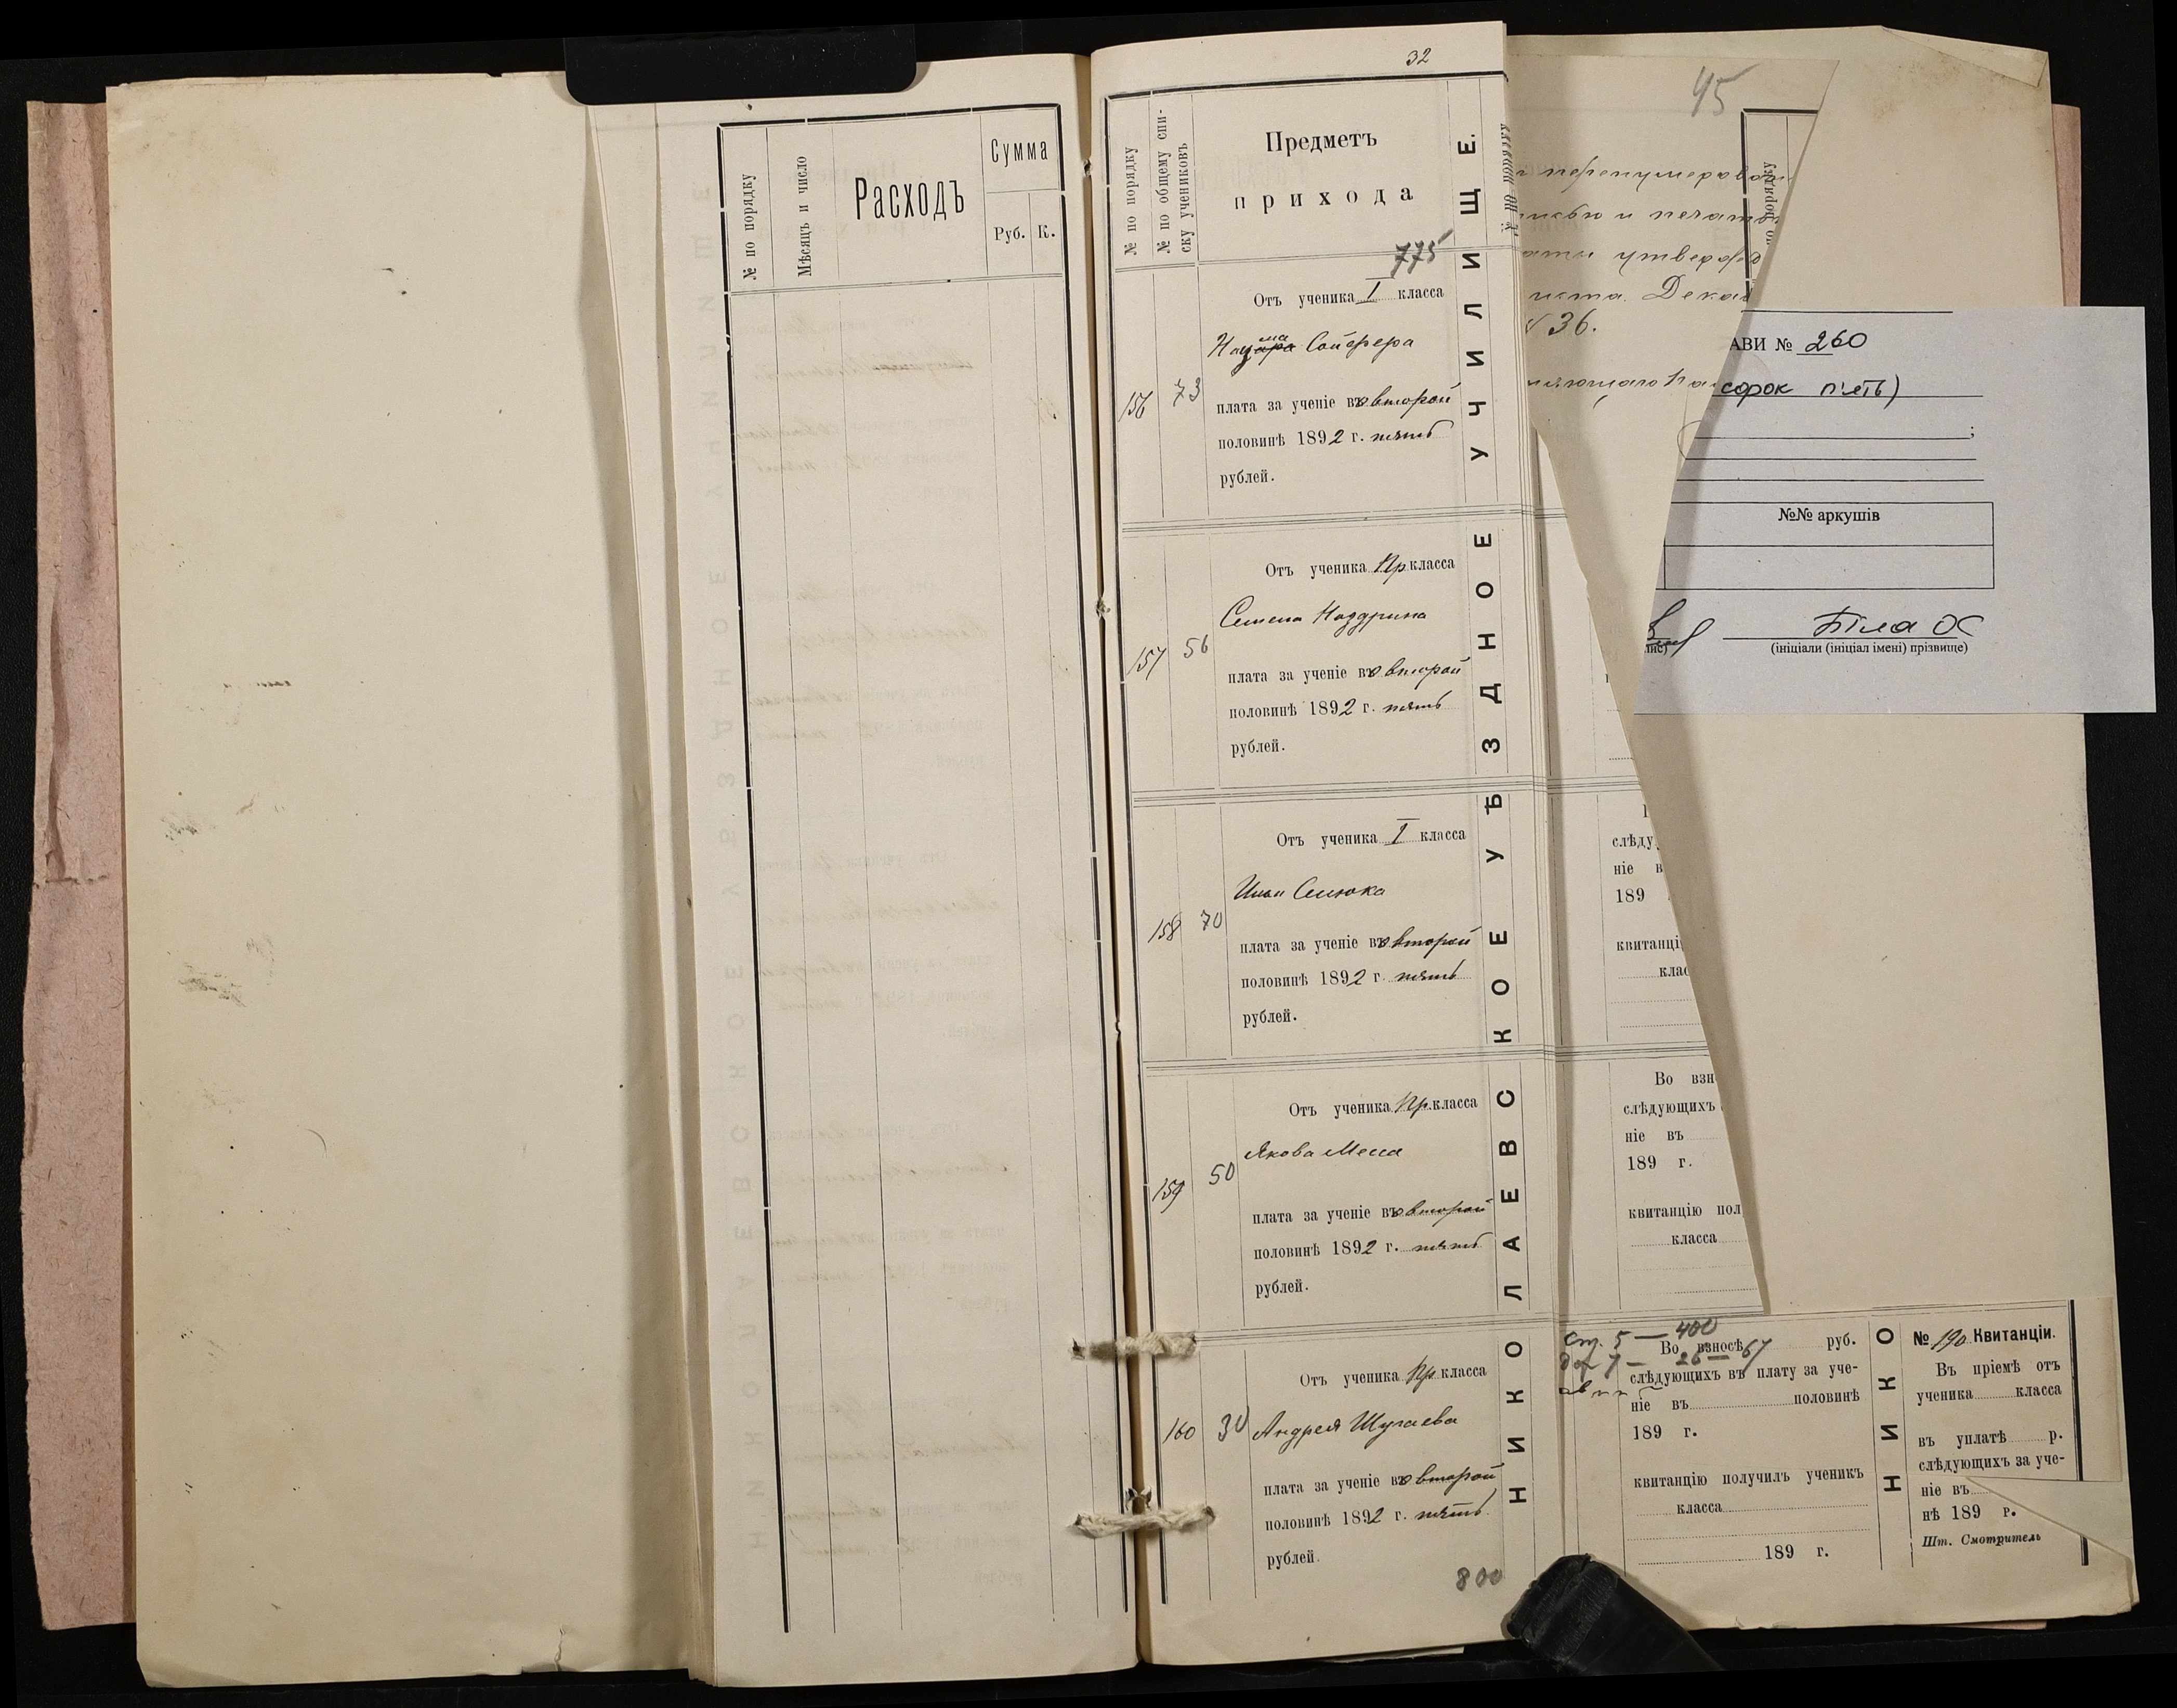 № по порядку
Мѣсяцъ и число
Расходъ
Сумма
Руб. К.
32
№ по порядку
№ по общему спи-
ску учениковъ
Предметъ
прихода
775
Отъ ученика I класса
Сойфера
156 73
плата за ученіе въ второй
половинѣ 1892 г. пять
рублей.
Отъ ученика Пр класса
Семена Ноздрина
157 56
плата за ученіе въ второй
половинѣ 1892 г. пять
рублей.
Отъ ученика I класса
Ильи Семюка
158 70
плата за ученіе въ второй
половинѣ 1892 г. пять
рублей.
Отъ ученика Пр. класса
Якова Меса
159 50
плата за ученіе въ второй
половинѣ 1892 г. пять
рублей.
Отъ ученика Пр класса
Андрея Шугаева
160 30
плата за ученіе въ второй
половинѣ 1892 г. пять
рублей.
800
НИКОЛАЕВСКОЕ УѢЗДНОЕ УЧИЛИЩЕ.
45
перенумерова
и печать
утверж
Декаб
36.
по порядку
АВИ № 260
сорок п'ять)
;
№№ аркушів
Біла ОС
(ініціали (ініціал імені) прізвище)
слѣду
ніе в
189
квитанці
клас
Во взн
слѣдующихъ
ніе въ
189 г.
квитанцію пол
класса
ст. 5 — 400
7 — 26 — 67
Во взносѣ руб.
слѣдующихъ въ плату за уче-
ніе въ половинѣ
189 г.
квитанцію получилъ ученикъ
класса
189 г.
НИКО
№ 190 Квитанціи.
Въ пріемѣ отъ
ученика класса
въ уплатѣ р.
слѣдующихъ за уче-
ніе въ
нѣ 189 г.
Шт. Смотритель